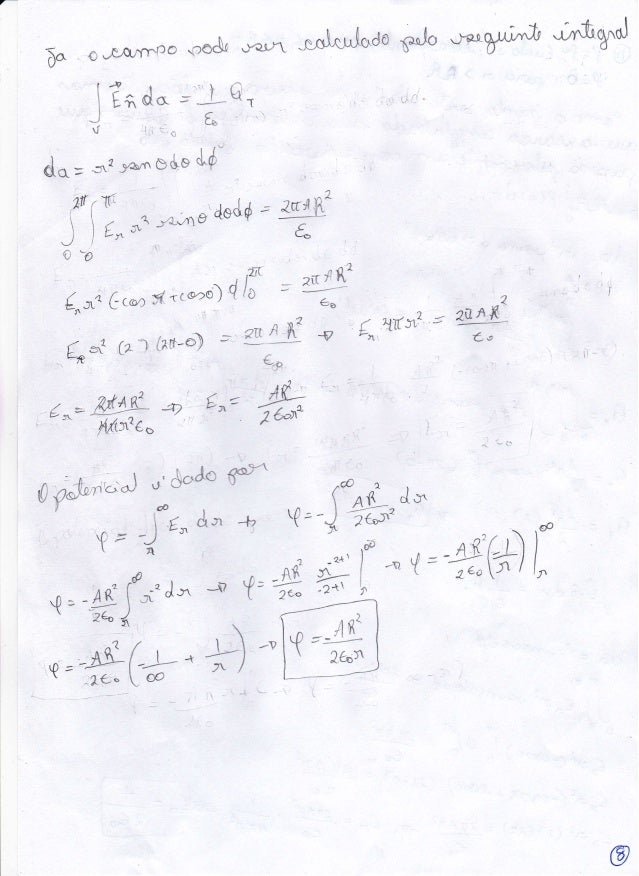 Ja o campo pode ser calculado pelo seguinte integral
∫_v E⃗ n̂ da = 1/ε₀ Q_T
da = r² senθ dθ dϕ
∫₀^{2π} ∫₀^{π} E_r r² sinθ dθ dϕ = 2πAR²/ε₀
E_r r² (-cos π + cos 0) ϕ|₀^{2π} = 2πAR²/ε₀
E_r r² (2) (2π-0) = 2πAR²/ε₀ ⇒ E_r 4πr² = 2πAR²/ε₀
E_r = 2πAR²/4πr²ε₀ ⇒ E_r = AR²/2ε₀r²
O potencial é dado por
φ = -∫_r^∞ E_r dr → φ = -∫_r^∞ AR²/2ε₀r² dr
φ = -AR²/2ε₀ ∫_r^∞ r⁻² dr → φ = -AR²/2ε₀ r^{-2+1}/-2+1 |_r^∞ → φ = -AR²/2ε₀ (-1/r)|_r^∞
φ = -AR²/2ε₀ (-1/∞ + 1/r) → φ = -AR²/2ε₀r
8